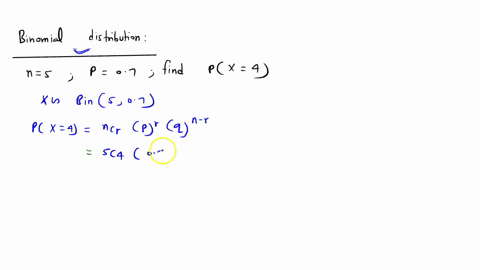 Binomial distribution:
n=5 ; P = 0.7 ; find P( X = 4)
X ~ Bin (5, 0.7)
P( X = 4) = nCr (P)^r (q)^n-r
= 5C4 ( 0.